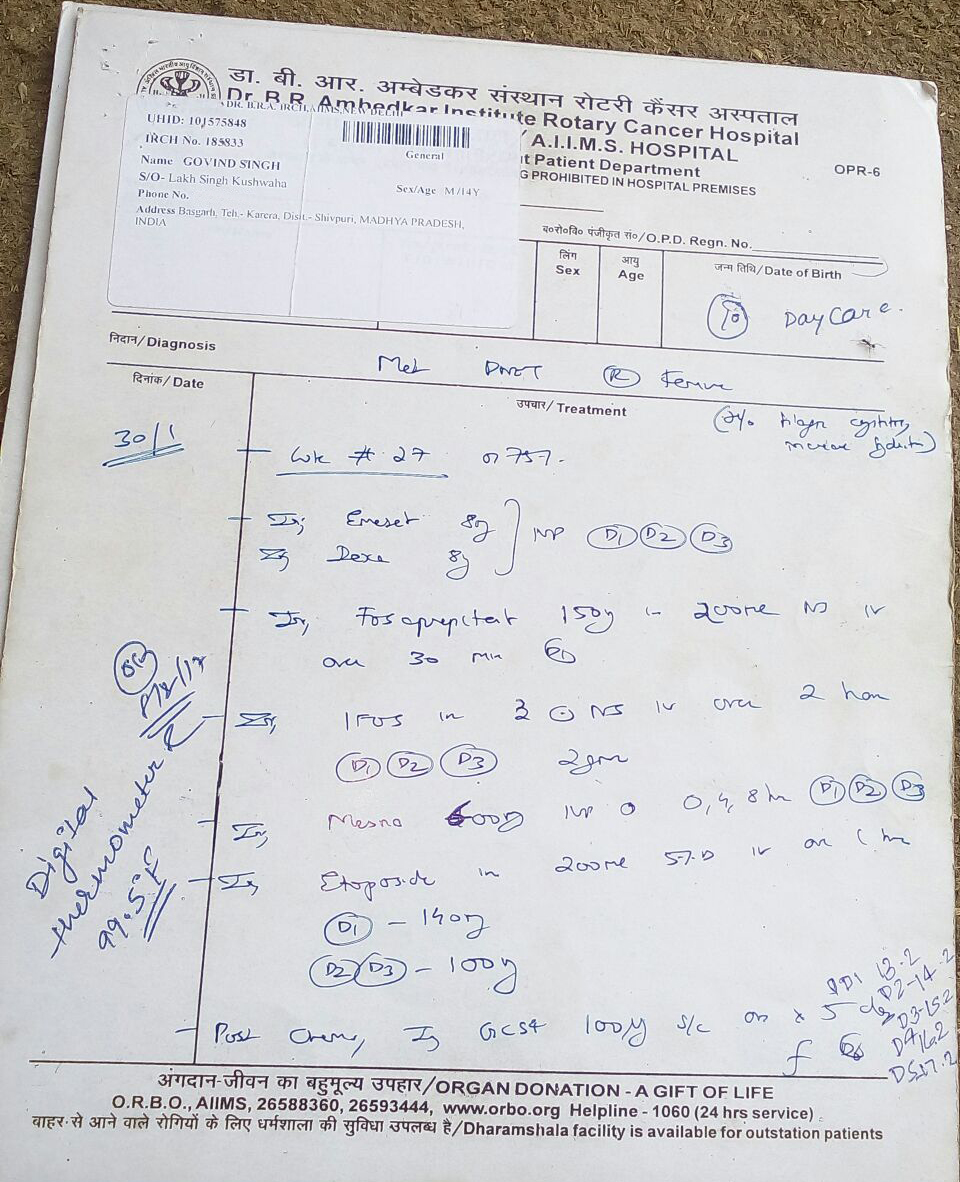 डा. बी. आर. अम्बेडकर संस्थान रोटरी कैंसर अस्पताल
Dr. B.R. Ambedkar Institute Rotary Cancer Hospital
A.I.I.M.S. HOSPITAL
Patient Department
PROHIBITED IN HOSPITAL PREMISES
OPR-6
DR. B.R.A. IRCH, AIIMS, NEW DELHI
UHID: 101575848
IRCH No. 185833
General
Name GOVIND SINGH
S/O- Lakh Singh Kushwaha
Sex/Age M/14Y
Phone No.
Address Basgarh, Teh.- Karera, Disit.- Shivpuri, MADHYA PRADESH,
INDIA
ब०रो०वि० पंजीकृत सं०/O.P.D. Regn. No.
लिंग
Sex
आयु
Age
जन्म तिथि/Date of Birth
Day Care.
निदान/Diagnosis
Met PNET R Femur
दिनांक/Date
उपचार/Treatment
30/1
Wk # 27
Inj Emeset 8mg
Inj Dexa 8mg
IVP D1 D2 D3
Inj Fosaprepitant 150mg in 200ml NS IV
over 30 min
Inj IFOS in NS IV over 2 hour
D1 D2 D3 2gm
Inj Mesna 600mg IVP 0, 4, 8 hr D1 D2 D3
Inj Etoposide in 200ml 5% D IV
D1 - 140mg
D2 D3 - 100mg
Post Chemo, Inj GCSF 100 s/c x 5
D1 13.2
D2-14.2
D3-15.2
D4 16.2
D5 17.2
Digital
thermometer
99.5°F
अंगदान-जीवन का बहुमूल्य उपहार/ORGAN DONATION - A GIFT OF LIFE
O.R.B.O., AIIMS, 26588360, 26593444, www.orbo.org Helpline - 1060 (24 hrs service)
बाहर से आने वाले रोगियों के लिए धर्मशाला की सुविधा उपलब्ध है/Dharamshala facility is available for outstation patients